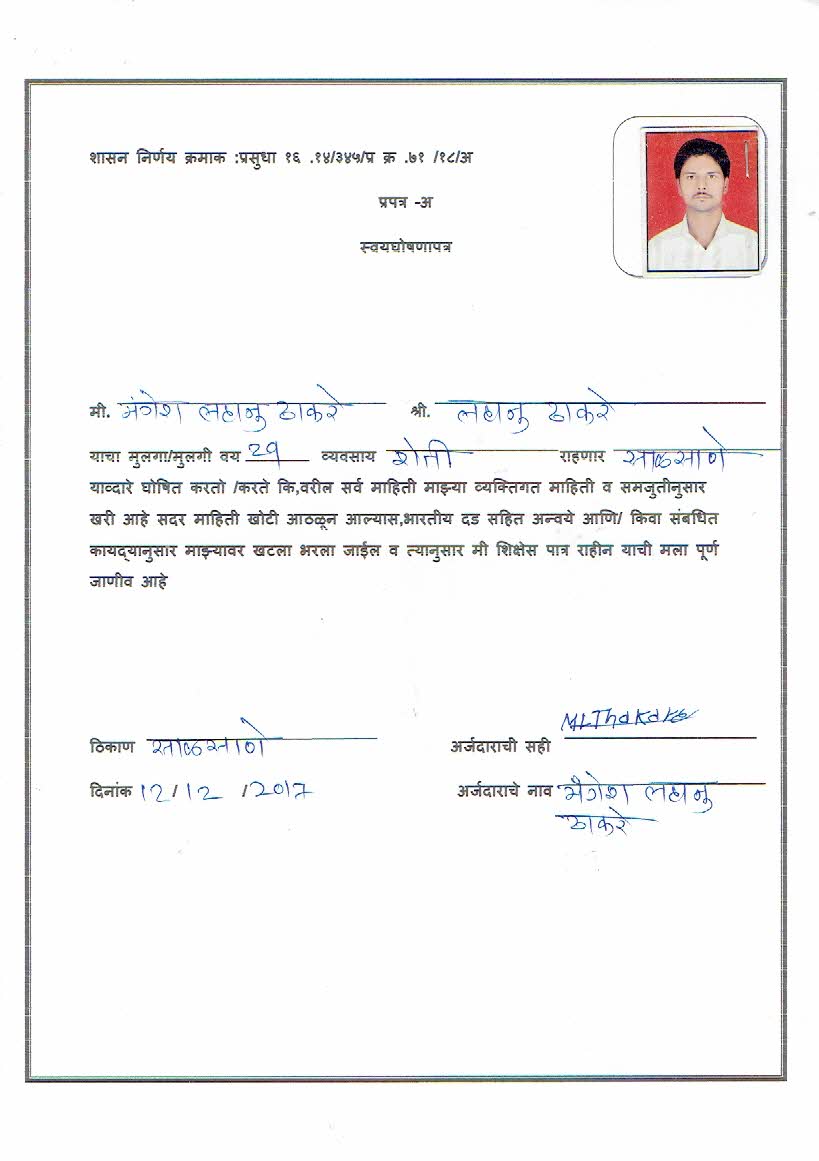 शासन निर्णय क्रमाक :प्रसुधा १६ .१४/३४५/प्र क्र .७१ /१८/अ
प्रपत्र -अ
स्वयघोषणापत्र
मी. मंगेश लहानु ठाकरे श्री. लहानु ठाकरे
याचा मुलगा/मुलगी वय 29 व्यवसाय शेती राहणार साळसाणे
याव्दारे घोषित करतो /करते कि,वरील सर्व माहिती माझ्या व्यक्तिगत माहिती व समजुतीनुसार
खरी आहे सदर माहिती खोटी आठळून आल्यास,भारतीय दड सहित अन्वये आणि/ किवा संबधित
कायद्यानुसार माझ्यावर खटला भरला जाईल व त्यानुसार मी शिक्षेस पात्र राहीन याची मला पूर्ण
जाणीव आहे
MLThakare
ठिकाण साळसाणे अर्जदाराची सही
दिनांक 12/12 /2017 अर्जदाराचे नाव मंगेश लहानु
ठाकरे